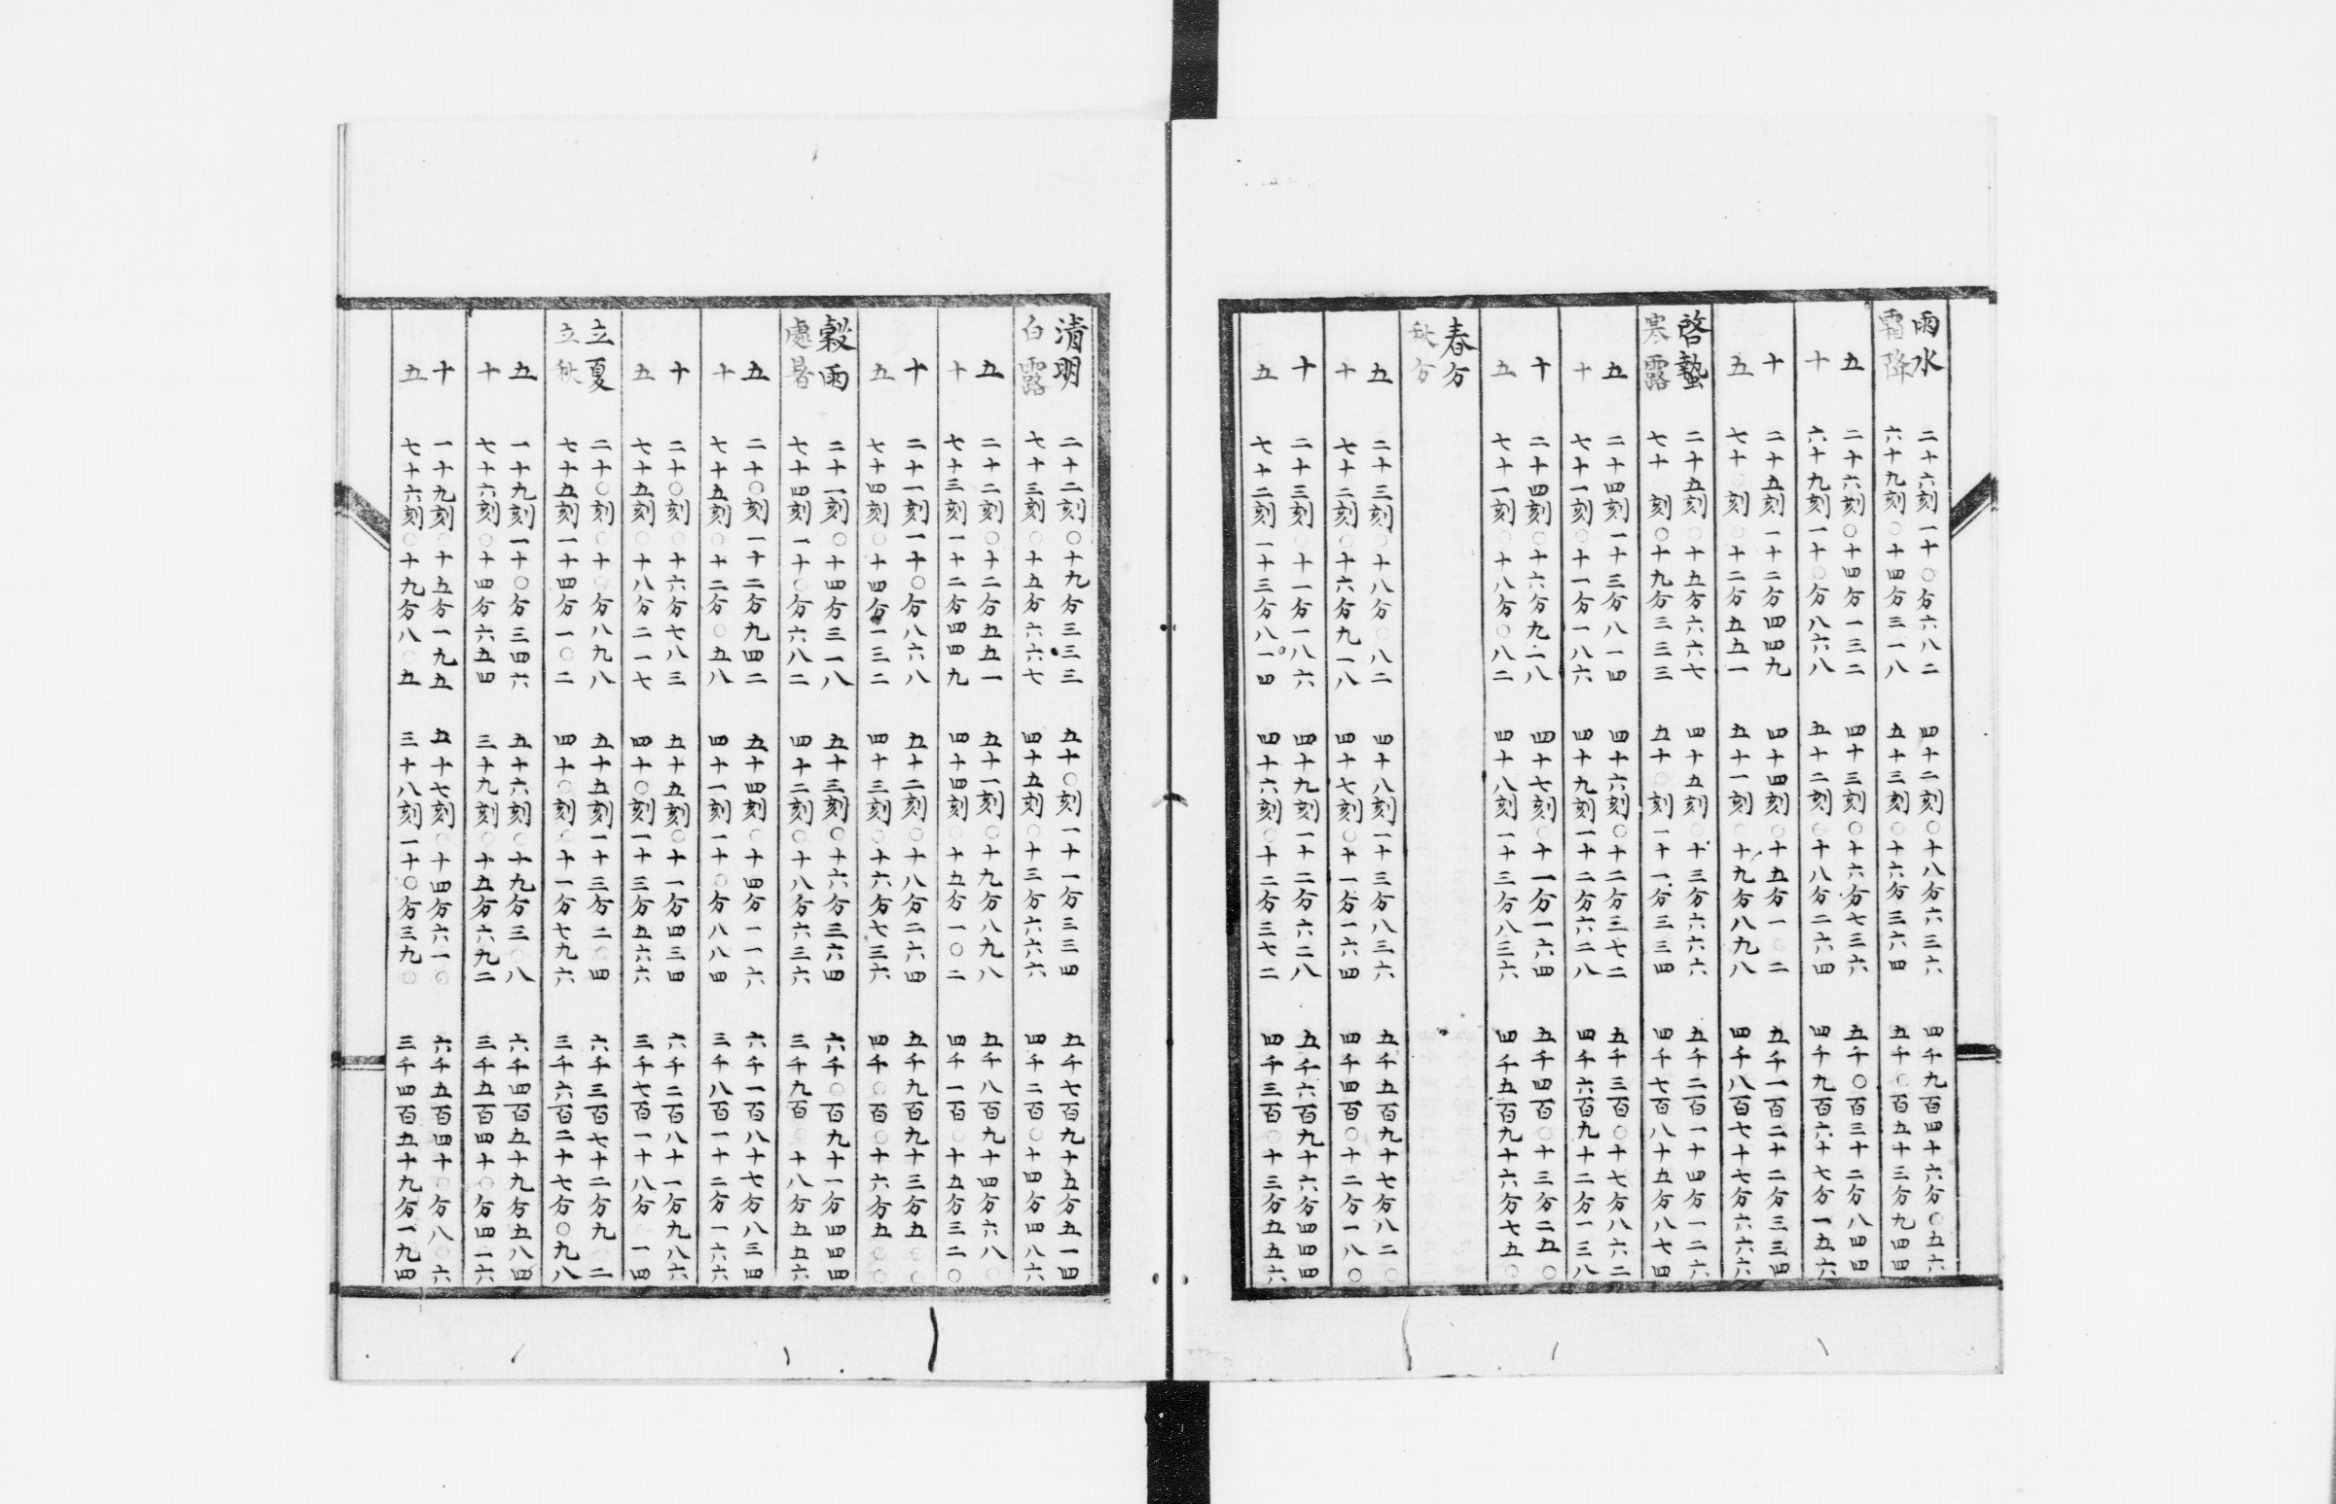 雨水 二十六刻一十○分六八二 四十二刻○十八分六三六 四千九百四十六分○五六
霜降 六十九刻○十四分三一八 五十三刻○十六分三六四 五千○百五十三分九四四
五 二十六刻○十四分一三二 四十三刻○十六分七三六 五千○百三十二分八四四
十 六十九刻一十○分八六八 五十二刻○十八分二六四 四千九百六十七分一五六
十 二十五刻一十二分四四九 四十四刻○十五分一○二 五千一百二十二分三三四
五 七十○刻○十二分五五一 五十一刻○十九分八九八 四千八百七十七分六六六
啓蟄 二十五刻○十五分六六七 四十五刻○十三分六六六 五千二百一十四分一二六
寒露 七十刻○十九分三三三 五十○刻一十一分三三四 四千七百八十五分八七四
五 二十四刻一十三分八一四 四十六刻○十二分三七二 五千三百○十七分八六二
十 七十一刻○十一分一八六 四十九刻一十二分六二八 四千六百九十二分一三八
十 二十四刻○十六分九一八 四十七刻○十一分一六四 五千四百○十三分二五○
五 七十一刻○十八分○八二 四十八刻一十三分八三六 四千五百九十六分七五○
春分
秋分
五 二十三刻○十八分○八二 四十八刻一十三分八三六 五千五百九十七分八二○
十 七十二刻○十六分九一八 四十七刻○十一分一六四 四千四百○十二分一八○
十 二十三刻○十一分一八六 四十九刻一十二分六二八 五千六百九十六分四四四
五 七十二刻一十三分八一四 四十六刻○十二分三七二 四千三百○十三分五五六
清明 二十二刻○十九分三三三 五十○刻一十一分三三四 五千七百九十五分五一四
白露 七十三刻○十五分六六七 四十五刻○十三分六六六 四千二百○十四分四八六
五 二十二刻○十二分五五一 五十一刻○十九分八九八 五千八百九十四分六八○
十 七十三刻一十二分四四九 四十四刻○十五分一○二 四千一百○十五分三二○
十 二十一刻一十○分八六八 五十二刻○十八分二六四 五千九百九十三分五○○
五 七十四刻○十四分一三二 四十三刻○十六分七三六 四千○百○十六分五○○
穀雨 二十一刻○十四分三一八 五十三刻○十六分三六四 六千○百九十一分四四四
處暑 七十四刻一十○分六八二 四十二刻○十八分六三六 三千九百○十八分五五六
五 二十○刻一十二分九四二 五十四刻○十四分一一六 六千一百八十七分八三四
十 七十五刻○十二分○五八 四十一刻一十○分八八四 三千八百一十二分一六六
十 二十○刻○十六分七八三 五十五刻○十一分四三四 六千二百八十一分九八六
五 七十五刻○十八分二一七 四十○刻一十三分五六六 三千七百一十八分○一四
立夏 二十○刻○十○分八九八 五十五刻一十三分二○四 六千三百七十二分九○二
立秋 七十五刻一十四分一○二 四十○刻○十一分七九六 三千六百二十七分○九八
五 一十九刻一十○分三四六 五十六刻○十九分三○八 六千四百五十九分五八四
十 七十六刻○十四分六五四 三十九刻○十五分六九二 三千五百四十○分四一六
十 一十九刻○十五分一九五 五十七刻○十四分六一○ 六千五百四十○分八○六
五 七十六刻○十九分八○五 三十八刻一十○分三九○ 三千四百五十九分一九四